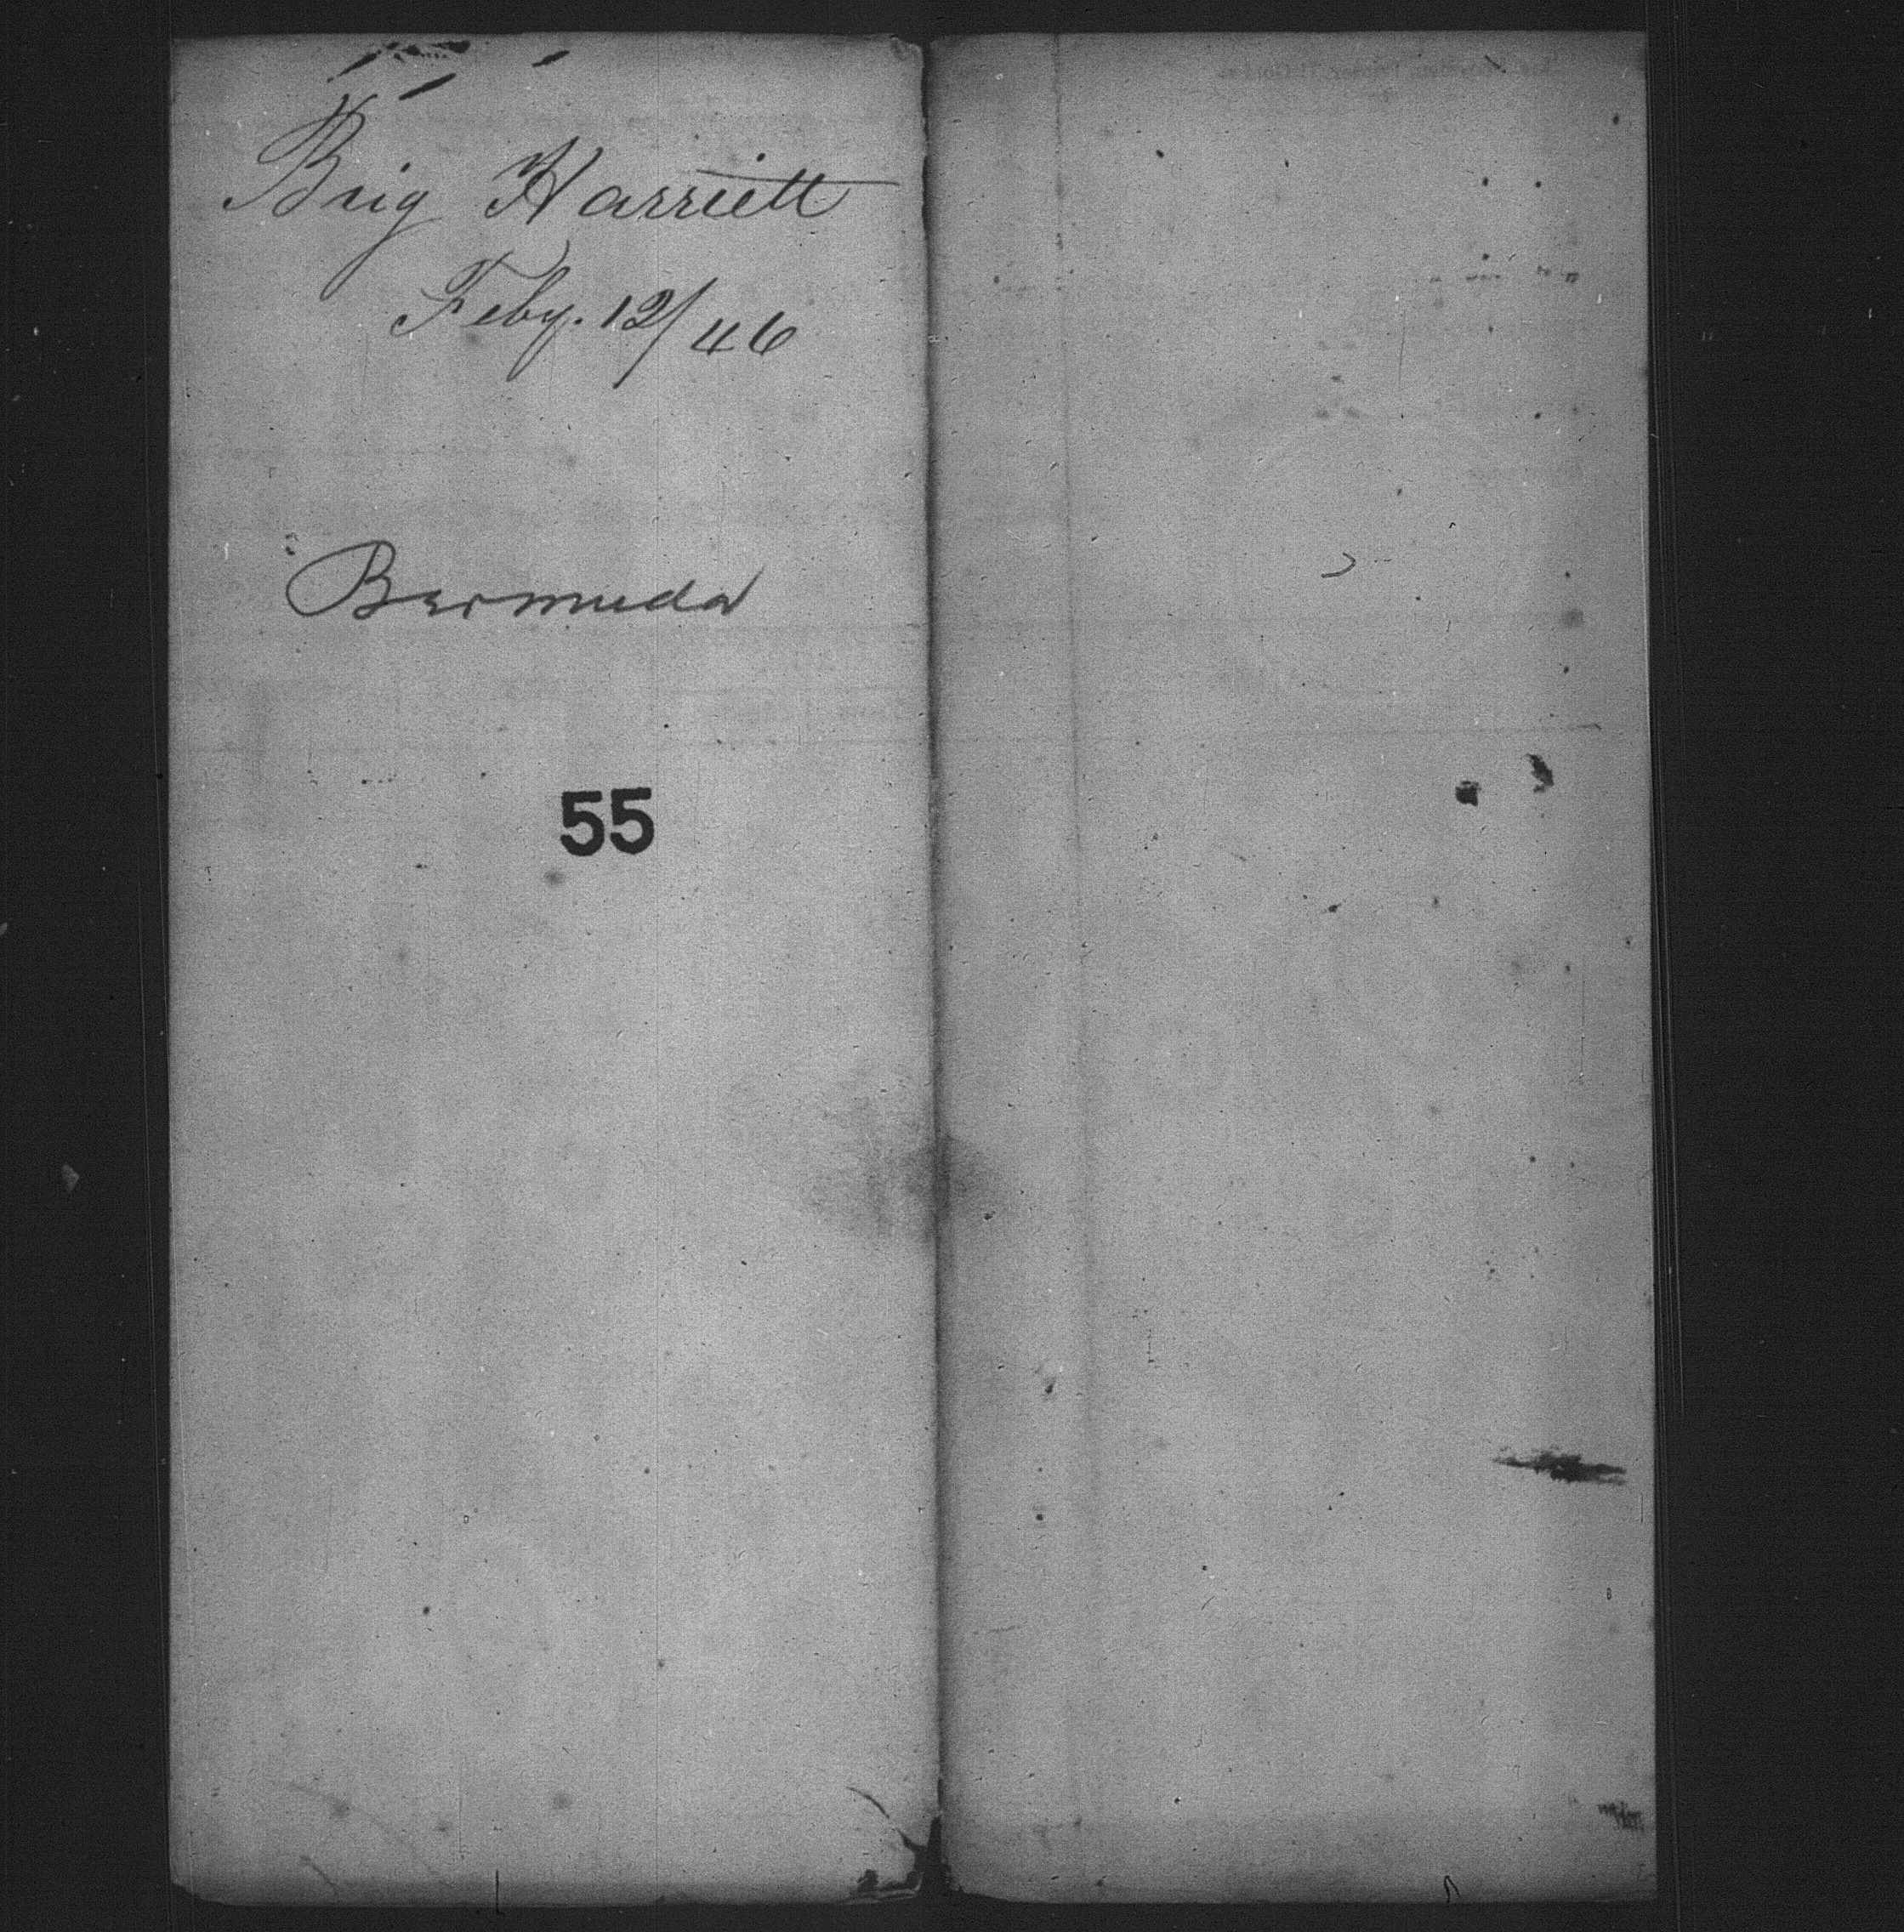 Brig Harriett
Feby. 12/46
Bermuda
55